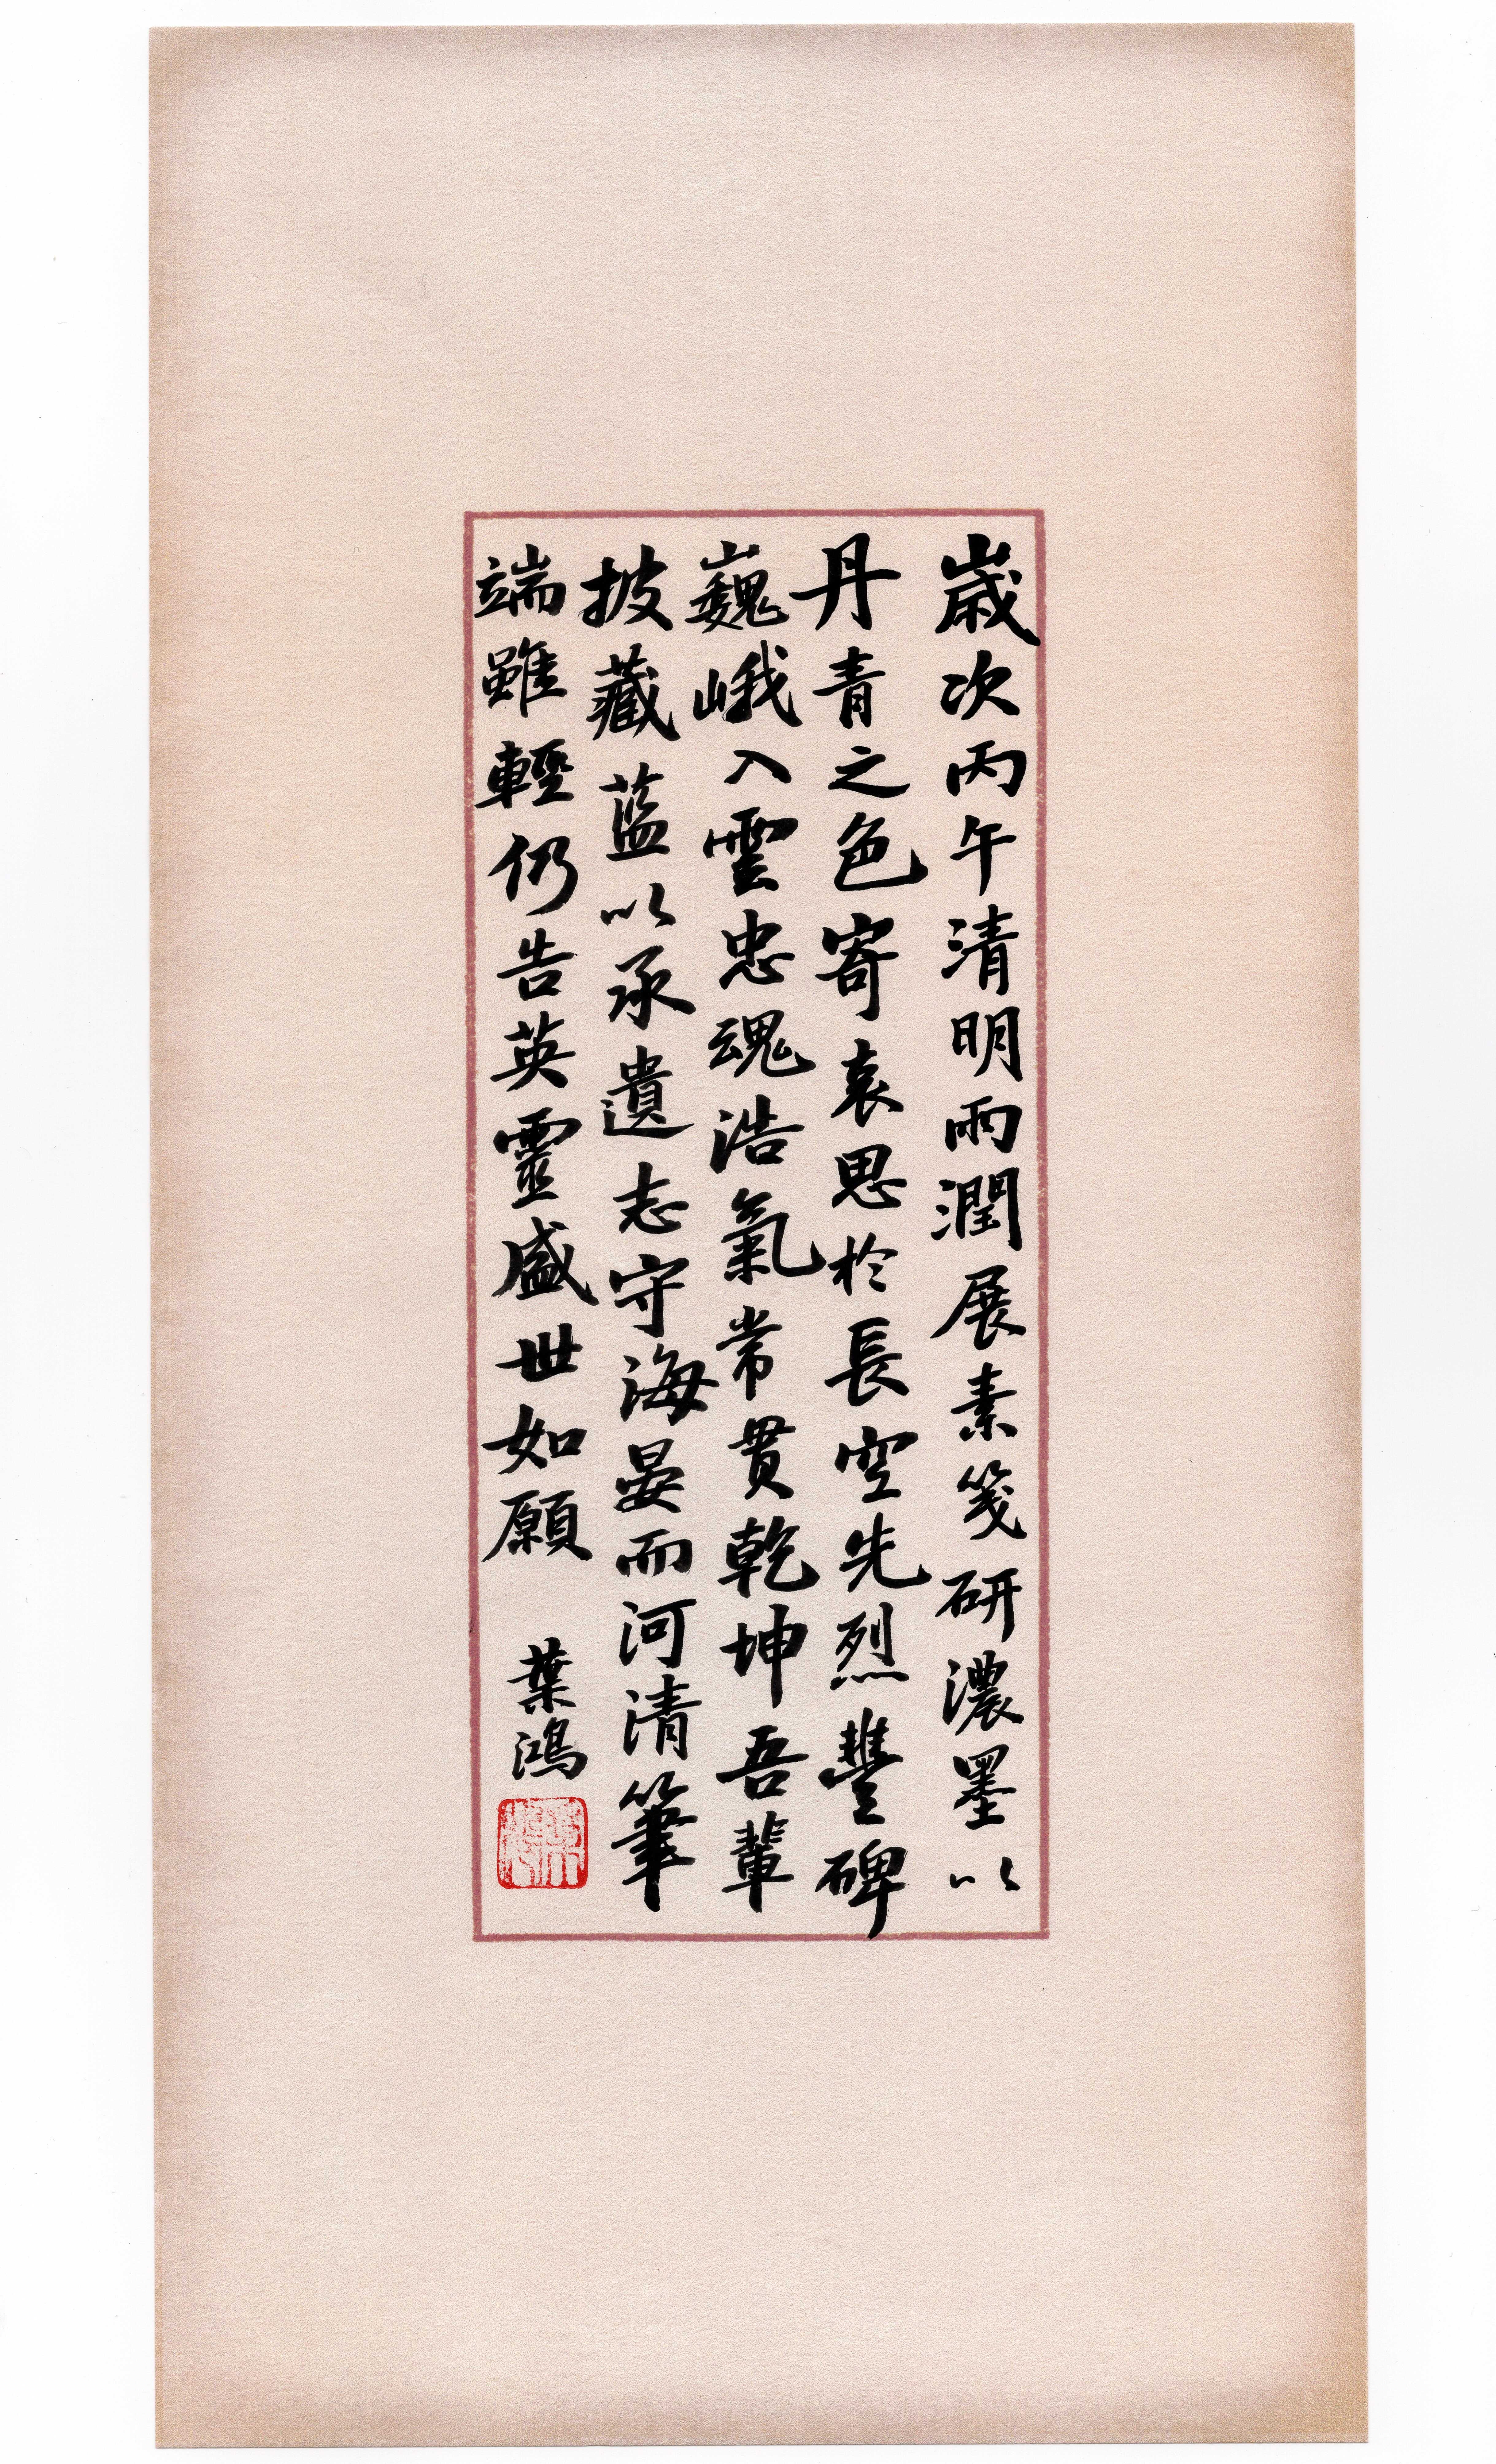 歲次丙午清明雨潤展素箋研濃墨以
丹青之色寄哀思於長空先烈豐碑
巍峨入雲忠魂浩氣常貫乾坤吾輩
披藏蓝以承遺志守海晏而河清筆
端雖輕仍告英靈盛世如願
葉鴻